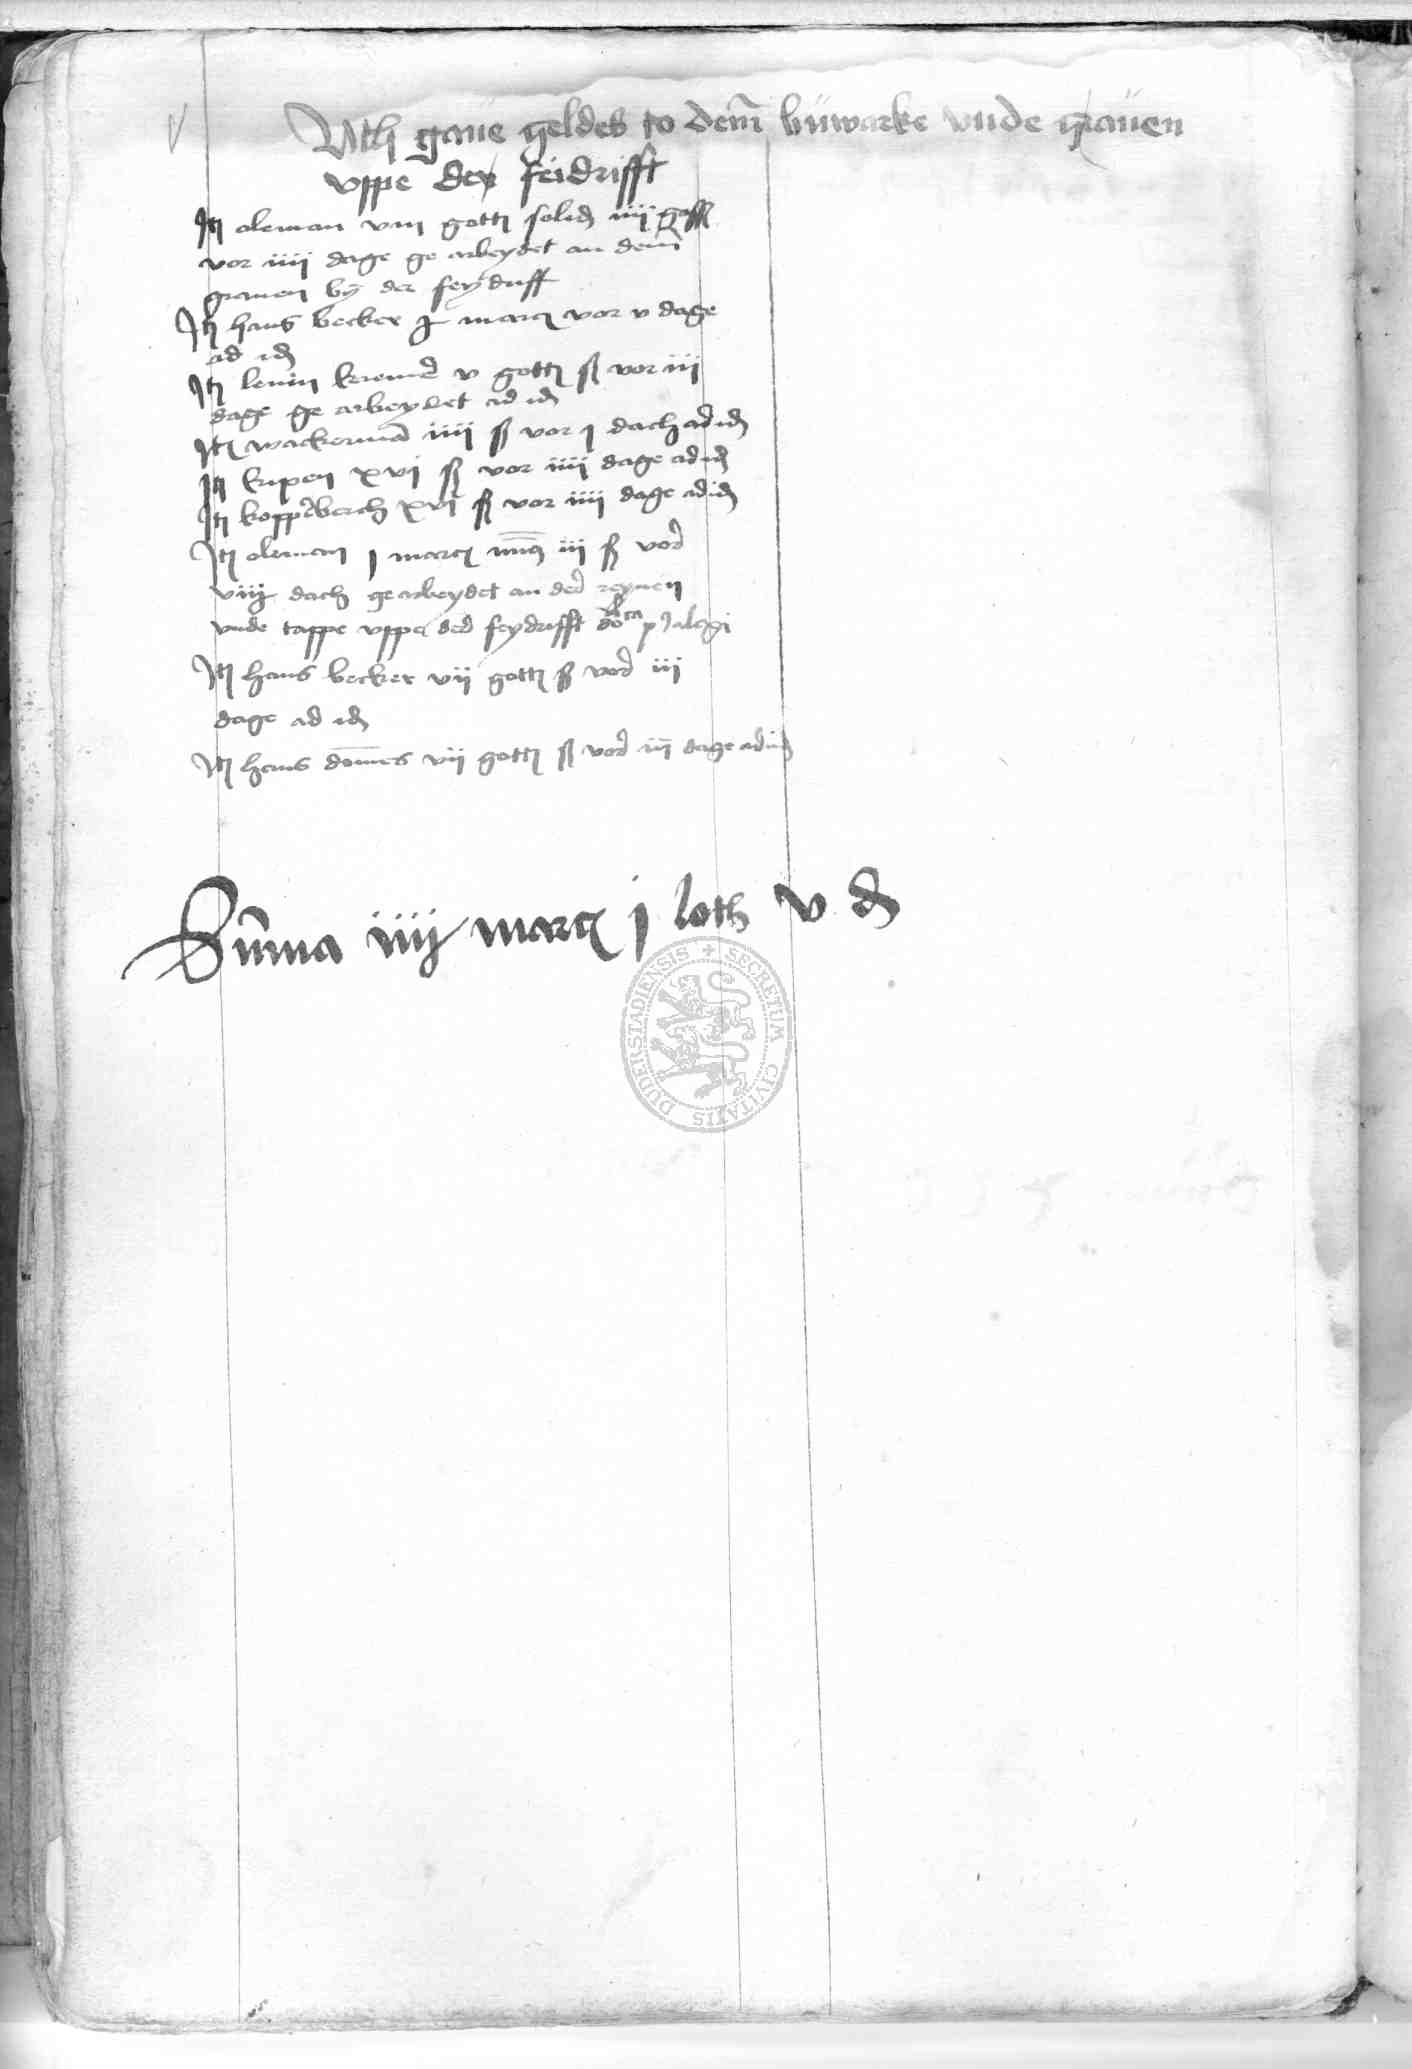 Uth gaue geldes to dem buwarke vnde grauen
vppe der feidrifft
It oleman viii gotti solid iiii
vor iiii dage ge arbeydet an dem
grauen by der feydriff
It hans becker marc vor v dage
ad id
It lenin kremer v gotti ß vor iii
dage ge arbeydet ad id
It wackerman iiii ß vor j dach ad id
It krupen xvi ß vor iiii dage ad id
It kopperberch xvi ß vor iiii dage ad id
It oleman j marc min9 iii ß vor
viiij dach gearbeydet an der reynen
vnde tappe vppe der feydrifft
It hans becker vii gotti ß vor iii
dage ad id
It hans domes vii gotti ß vor iii dage ad id
Suma iiij marc j loth v d
SECRETUM CIVITATIS DUDERSTADIENSIS